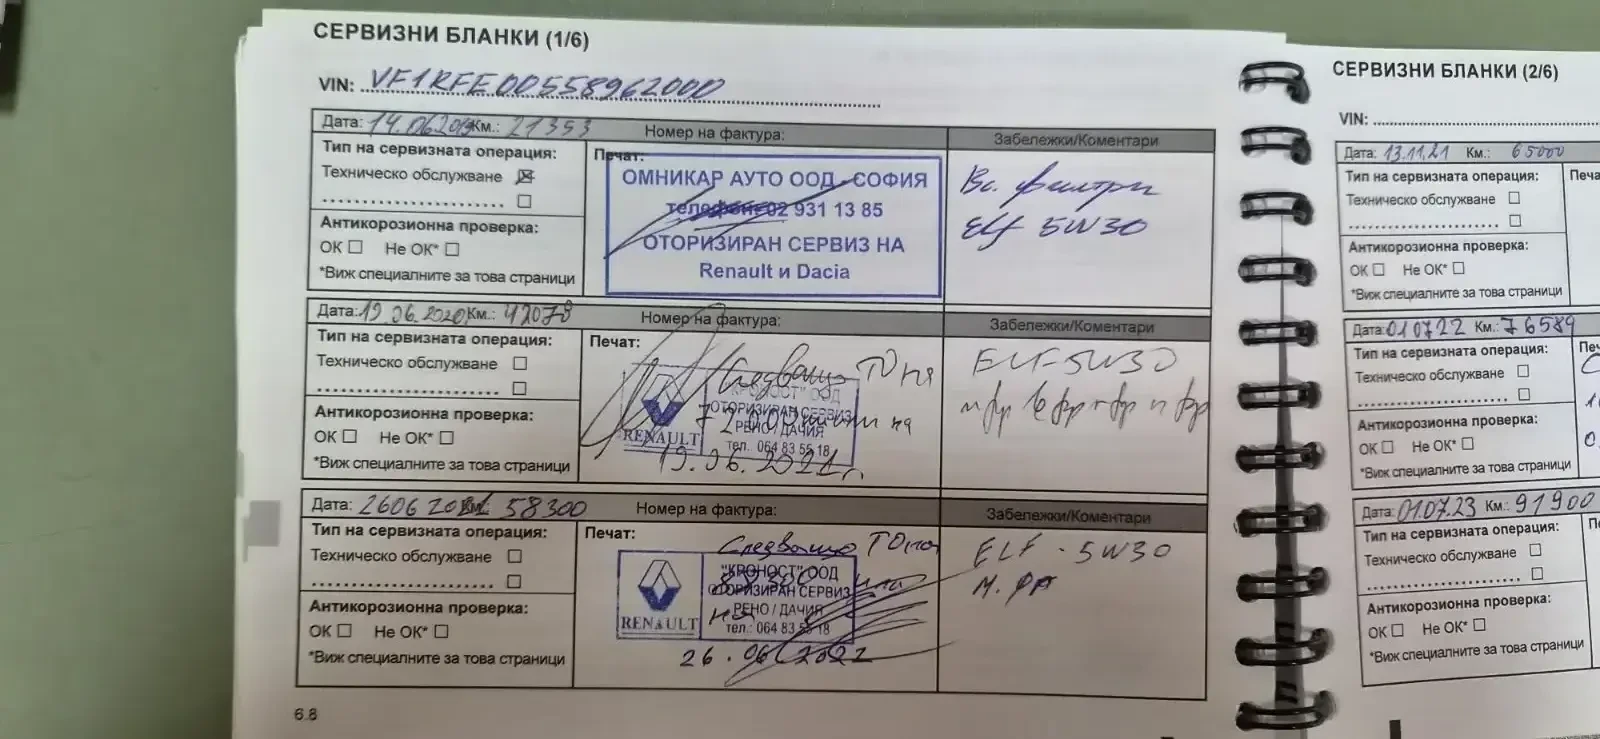 СЕРВИЗНИ БЛАНКИ (1/6)
VIN: VF1RFE00558962000
Дата: 14.062019 Км.: 21353 Номер на фактура: Забележки/Коментари
Тип на сервизната операция:
Техническо обслужване ☒
Антикорозионна проверка:
ОК ☐ Не ОК* ☐
*Виж специалните за това страници
Печат:
ОМНИКАР АУТО ООД - СОФИЯ
телефон: 02 931 13 85
ОТОРИЗИРАН СЕРВИЗ НА
Renault и Dacia
Вс. филтри
Elf 5W30
Дата: 19 06.2020 Км.: 42078 Номер на фактура: Забележки/Коментари
Тип на сервизната операция:
Техническо обслужване ☐
Антикорозионна проверка:
ОК ☐ Не ОК* ☐
*Виж специалните за това страници
Печат:
Следващо ТО на
"КРОНОСТ" ООД
ОТОРИЗИРАН СЕРВИЗ
РЕНО / ДАЧИЯ
тел. 064 83 55 18
RENAULT
19.06.2021г.
ELF-5W30
Дата: 2606 2021 Км.: 58300 Номер на фактура: Забележки/Коментари
Тип на сервизната операция:
Техническо обслужване ☐
Антикорозионна проверка:
ОК ☐ Не ОК* ☐
*Виж специалните за това страници
Печат:
Следващо ТО на
"КРОНОСТ" ООД
ОТОРИЗИРАН СЕРВИЗ
РЕНО / ДАЧИЯ
тел.: 064 83 55 18
RENAULT
26.06.2022
ELF - 5W30
6.8
СЕРВИЗНИ БЛАНКИ (2/6)
VIN:
Дата: 13.11.21 Км.: 65000
Тип на сервизната операция:
Техническо обслужване ☐
Антикорозионна проверка:
ОК ☐ Не ОК* ☐
*Виж специалните за това страници
Дата: 010722 Км.: 76589
Тип на сервизната операция:
Техническо обслужване ☐
Антикорозионна проверка:
ОК ☐ Не ОК* ☐
*Виж специалните за това страници
Дата: 01.07.23 Км.: 91900
Тип на сервизната операция:
Техническо обслужване ☐
Антикорозионна проверка:
ОК ☐ Не ОК* ☐
*Виж специалните за това страници